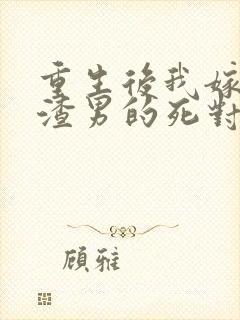 重生後我嫁
渣男的死對
顧雅